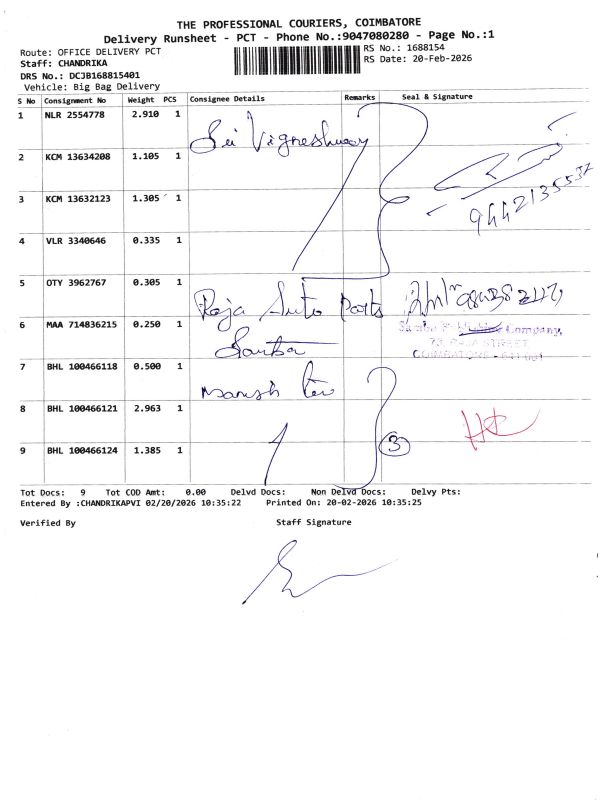 THE PROFESSIONAL COURIERS, COIMBATORE
Delivery Runsheet - PCT - Phone No.:9047080280 - Page No.:1
Route: OFFICE DELIVERY PCT
RS No.: 1688154
Staff: CHANDRIKA
RS Date: 20-Feb-2026
DRS No.: DCJB168815401
Vehicle: Big Bag Delivery
S No Consignment No Weight PCS Consignee Details Remarks Seal & Signature
1 NLR 2554778 2.910 1
Sri Vigneshwar
2 KCM 13634208 1.105 1
3 KCM 13632123 1.305 1
9442135537
4 VLR 3340646 0.335 1
5 OTY 3962767 0.305 1 Raja Auto Parts
6 MAA 714836215 0.250 1 Company,
73, RAJA STREET,
COIMBATORE - 641 001
7 BHL 100466118 0.500 1 Manish
8 BHL 100466121 2.963 1
9 BHL 100466124 1.385 1 3
Tot Docs: 9 Tot COD Amt: 0.00 Delvd Docs: Non Delvd Docs: Delvy Pts:
Entered By :CHANDRIKAPVI 02/20/2026 10:35:22 Printed On: 20-02-2026 10:35:25
Verified By Staff Signature